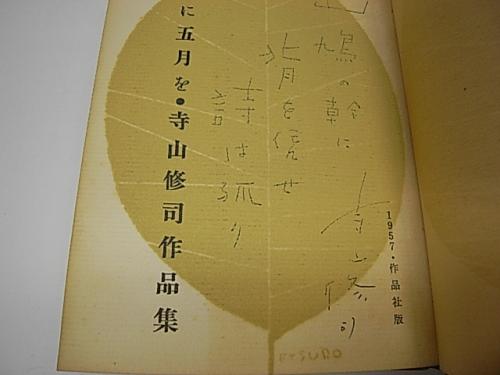 1957・作品社版
山鳩の幹に
背を倚せ
詩は孤り
寺山修司
に五月を●寺山修司作品集